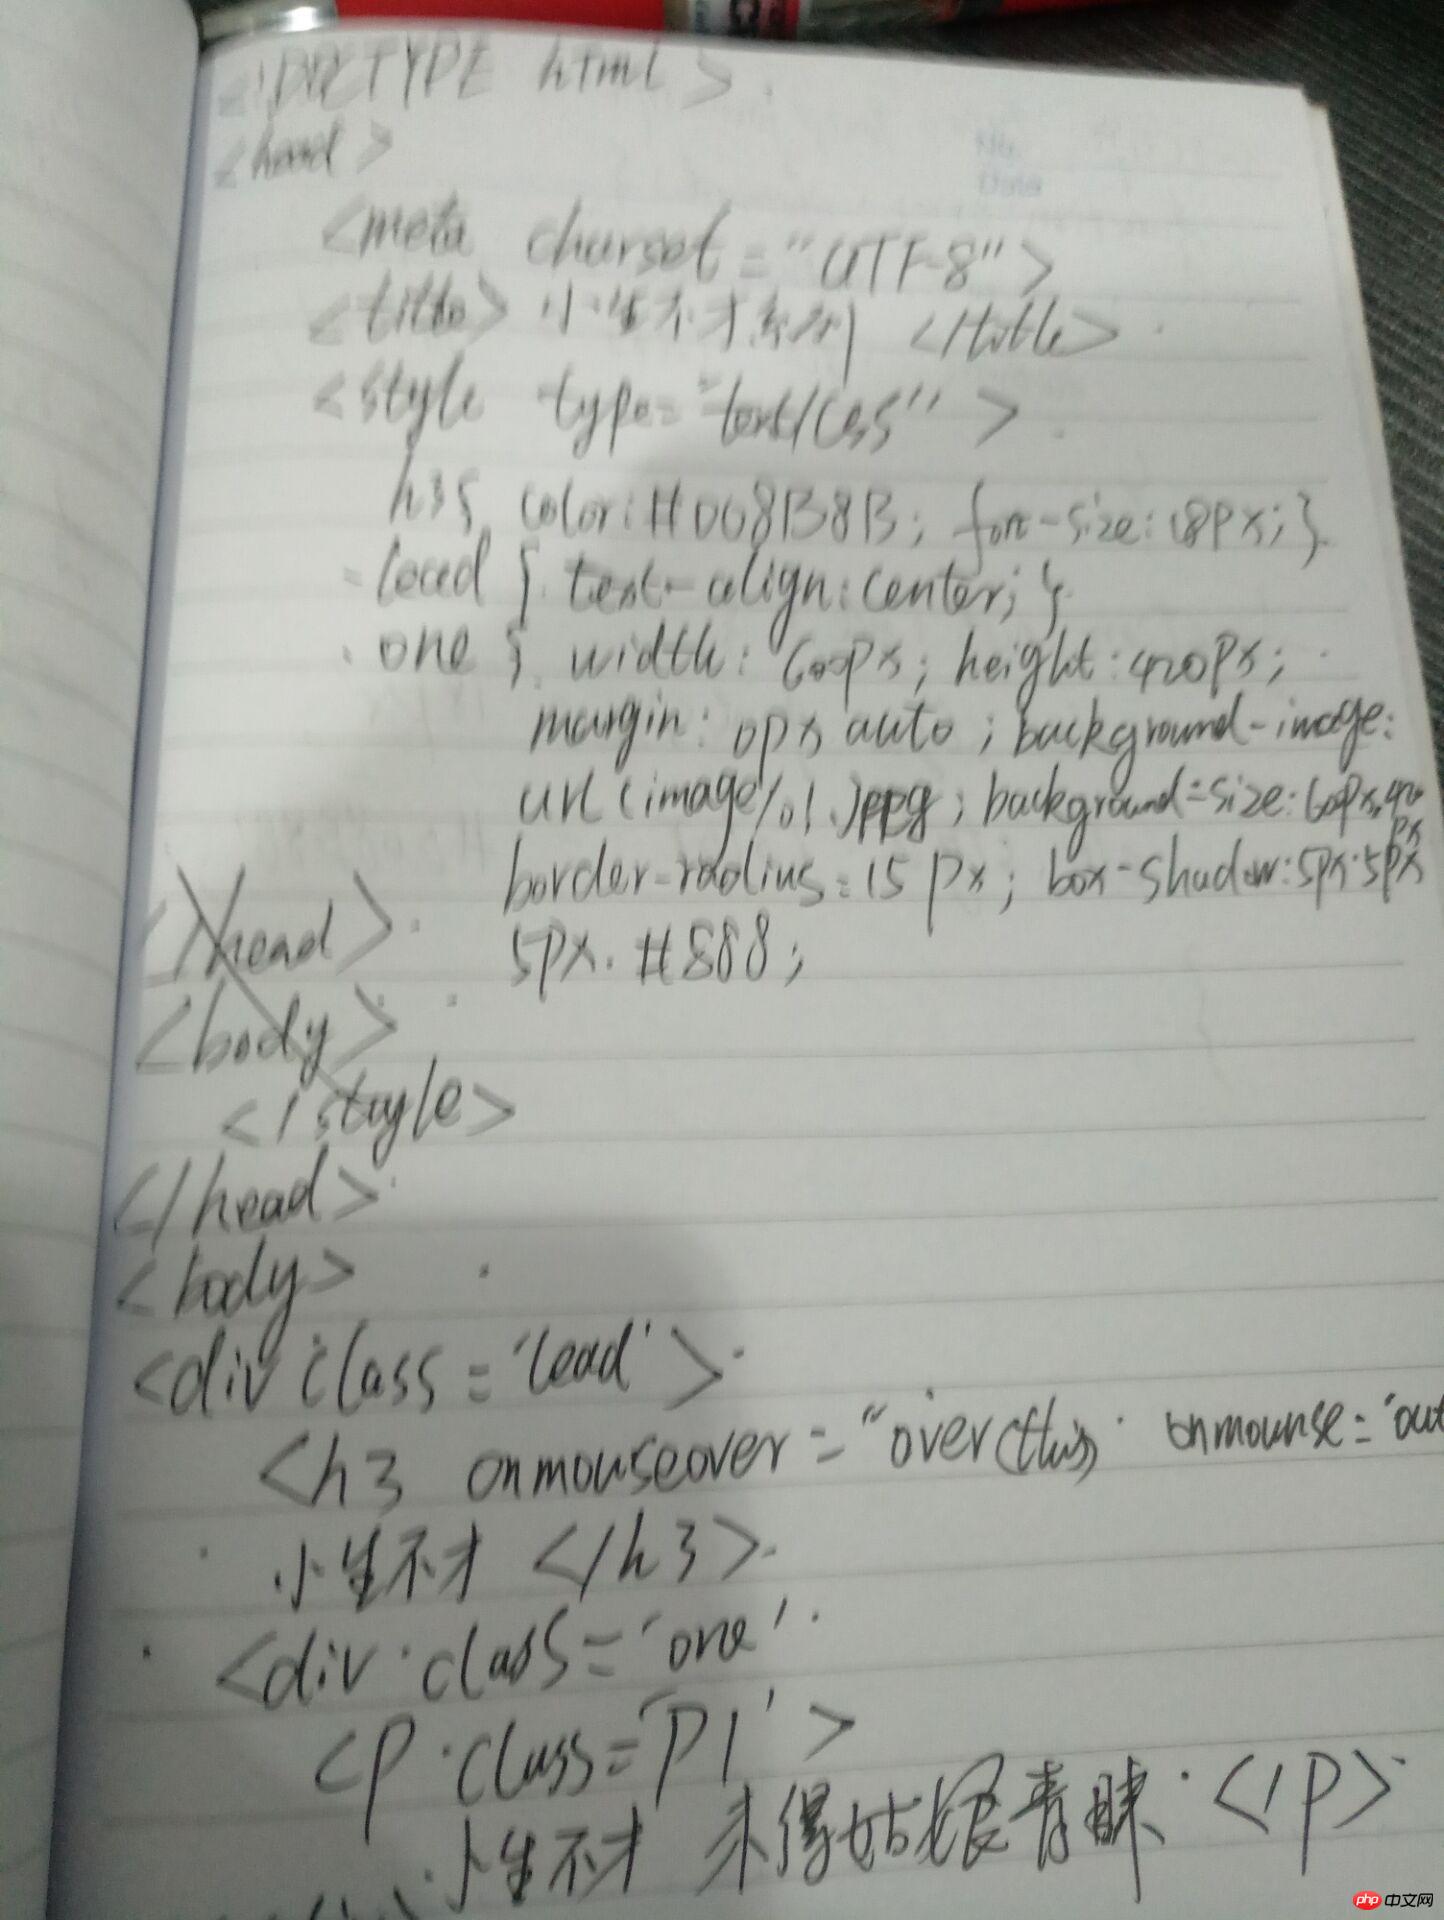 <!DOCTYPE html>
<head>
<meta charset="UTF-8">
<title>小生不才系列</title>
<style type="text/css">
h3{ color:#008B8B; font-size:18px;}
.lead { text-align:center; }
.one { width: 600px; height:420px;
margin: 0px auto; background-image:
url(image/01.); background-size:600px,420
px
border-radius:15px; box-shadow:5px 5px
</head>
5px #888;
<body>
</style>
</head>
<body>
<div class='lead'>
<h3 onmouseover="over(this) onmounse='out
小生不才 </h3>
<div class='one'
<p class='p1'>
小生不才 未得姑娘青睐 </p>
php 中文网